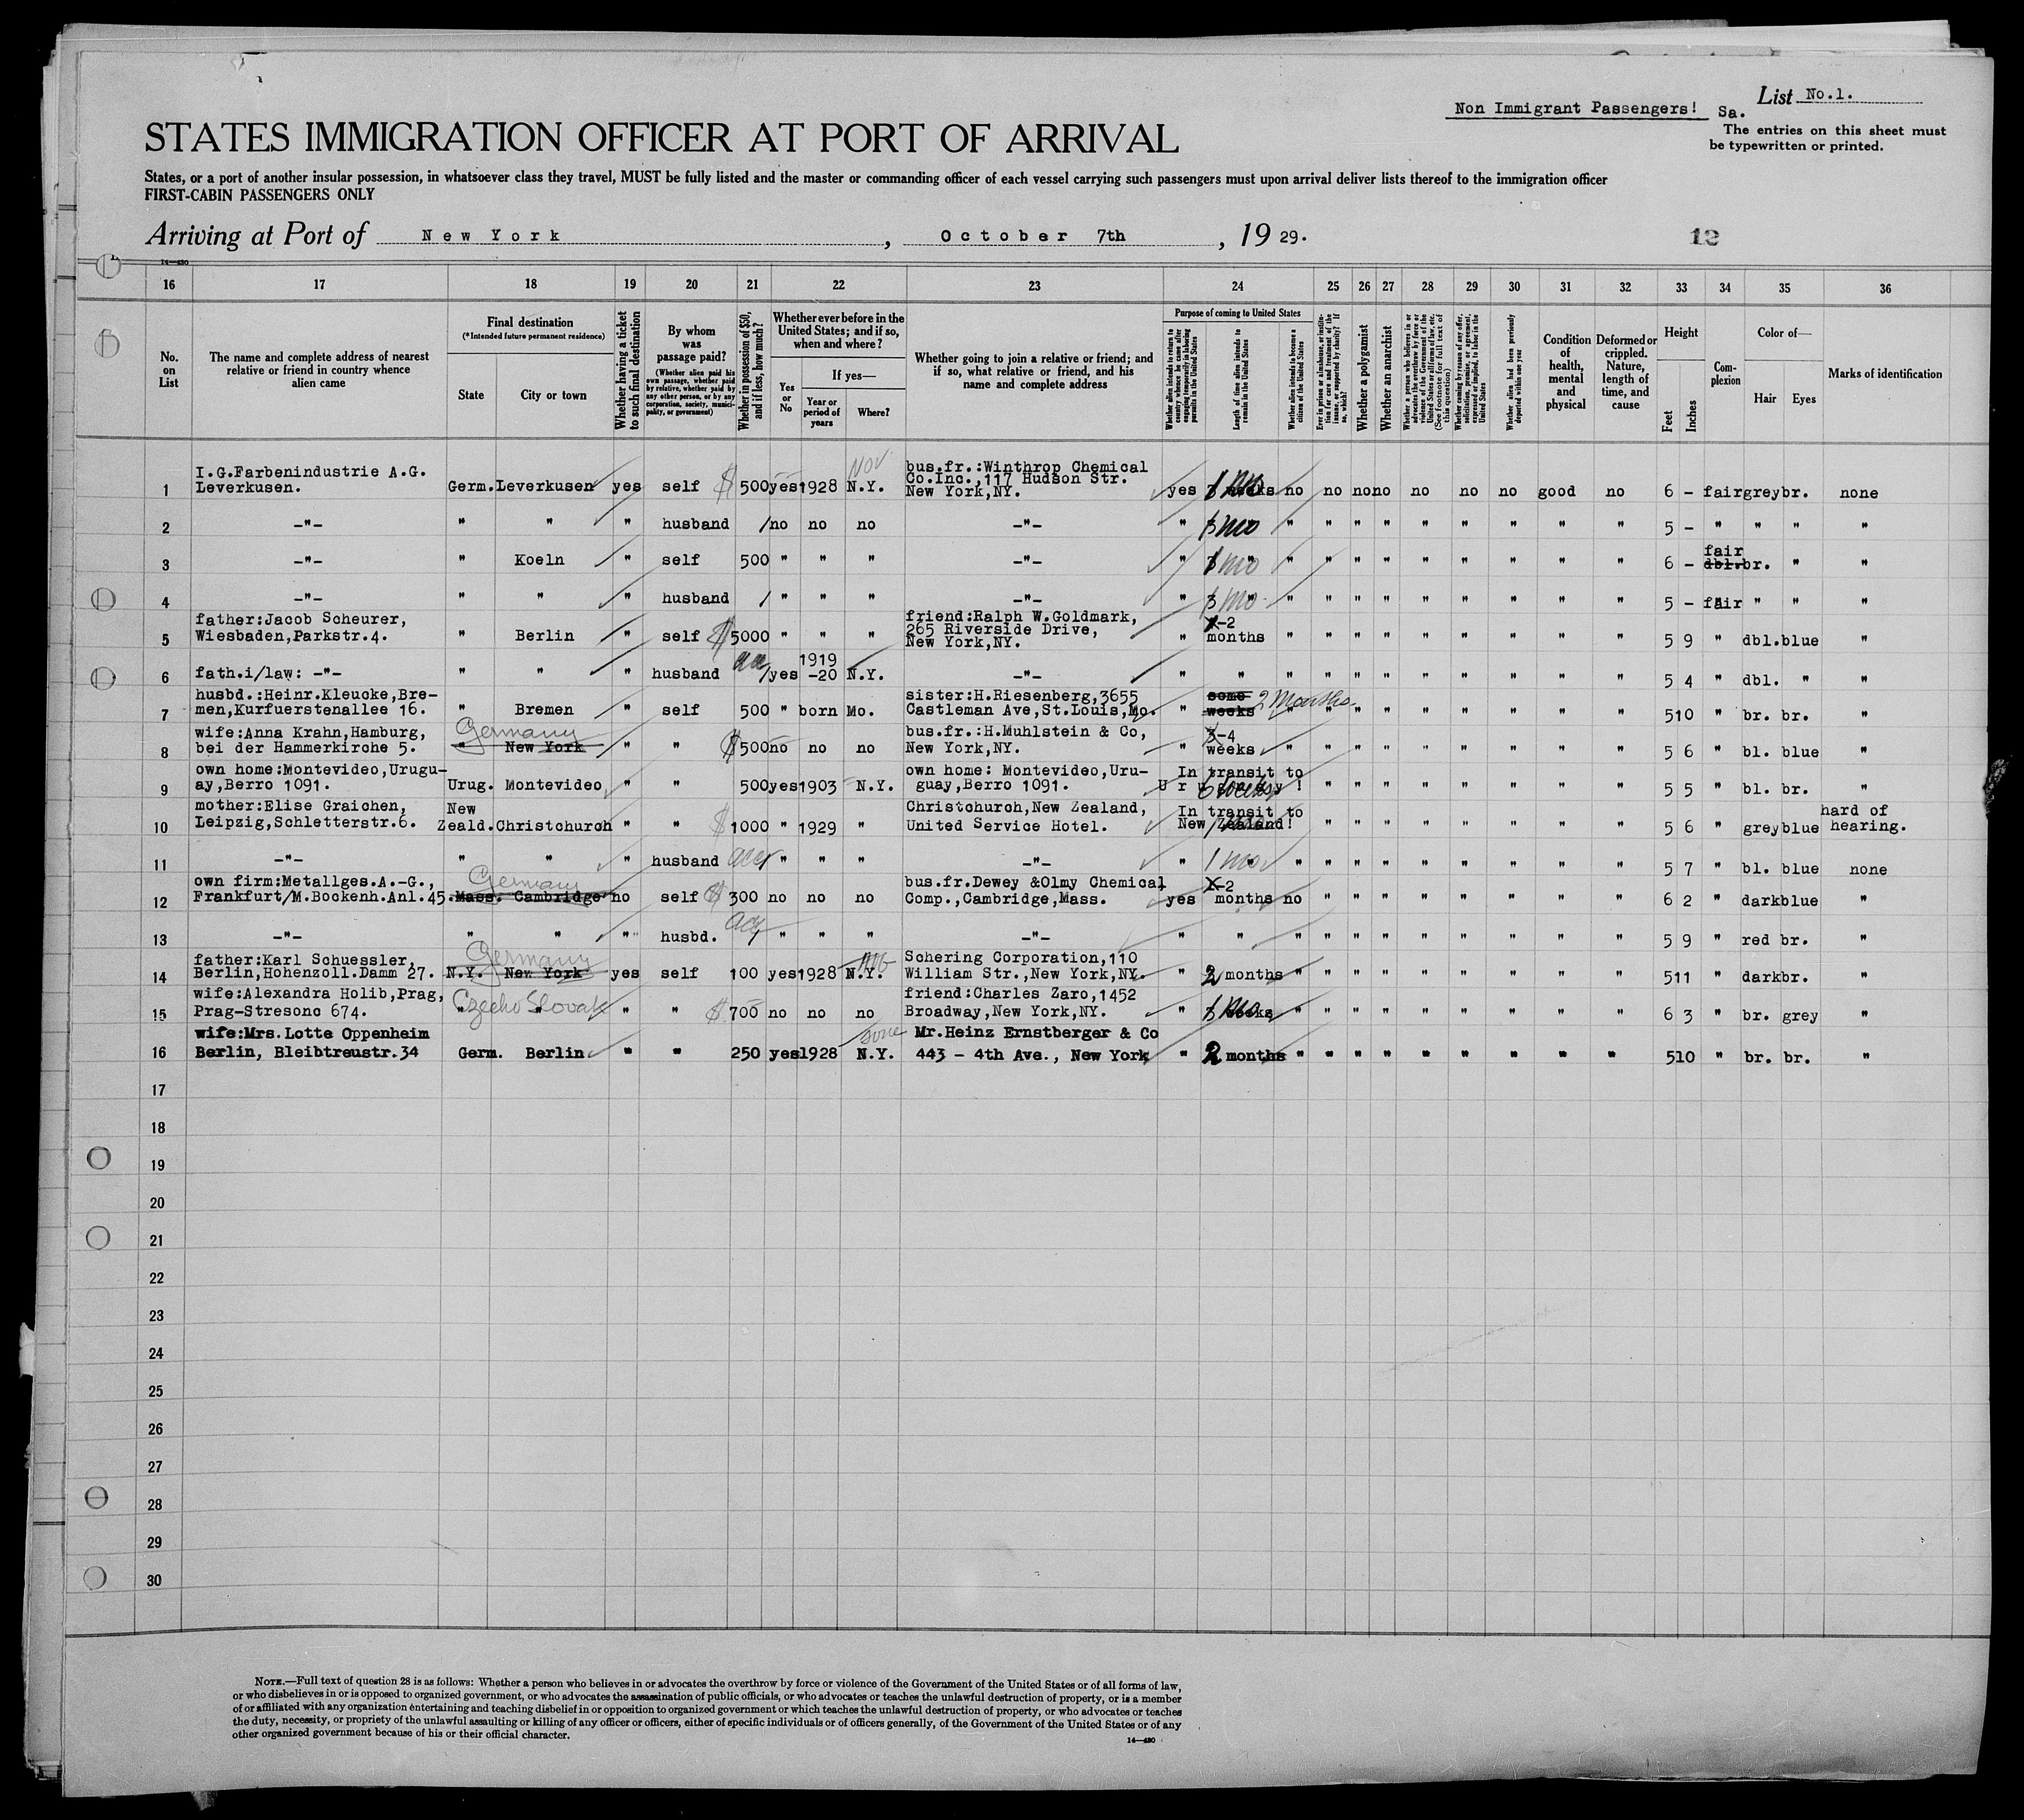 List No.1.
Non Immigrant Passengers! Sa.
The entries on this sheet must
be typewritten or printed.
STATES IMMIGRATION OFFICER AT PORT OF ARRIVAL
States, or a port of another insular possession, in whatsoever class they travel, MUST be fully listed and the master or commanding officer of each vessel carrying such passengers must upon arrival deliver lists thereof to the immigration officer
FIRST-CABIN PASSENGERS ONLY
Arriving at Port of New York, October 7th, 1929.
12
14—430
16 17 18 19 20 21 22 23 24 25 26 27 28 29 30 31 32 33 34 35 36
No. on List
The name and complete address of nearest relative or friend in country whence alien came
Final destination
(*Intended future permanent residence)
State
City or town
Whether having a ticket to such final destination
By whom was passage paid?
(Whether alien paid his own passage, whether paid by relative, whether paid by any other person, or by any corporation, society, municipality, or government)
Whether in possession of $50, and if less, how much?
Whether ever before in the United States; and if so, when and where?
Yes or No
If yes—
Year or period of years
Where?
Whether going to join a relative or friend; and if so, what relative or friend, and his name and complete address
Purpose of coming to United States
Whether alien intends to return to country whence he came after engaging temporarily in laboring pursuits in the United States
Length of time alien intends to remain in the United States
Whether alien intends to become a citizen of the United States
Ever in prison or almshouse, or institution for care and treatment of the insane, or supported by charity? If so, which?
Whether a polygamist
Whether an anarchist
Whether a person who believes in or advocates the overthrow by force or violence of the Government of the United States or all forms of law, etc. (See footnote for full text of this question)
Whether coming by reason of any offer, solicitation, promise, or agreement, expressed or implied, to labor in the United States
Whether alien had been previously deported within one year
Condition of health, mental and physical
Deformed or crippled. Nature, length of time, and cause
Height
Feet
Inches
Complexion
Color of—
Hair
Eyes
Marks of identification
I.G.Farbenindustrie A.G. Nov bus.fr.:Winthrop Chemical
Co.Inc.,117 Hudson Str.
1 Leverkusen. Germ. Leverkusen yes self $ 500 yes 1928 N.Y. New York,NY. yes mo no no no no no no no good no 6 - fair grey br. none
2 -"- " " " husband / no no no -"- " 3 mo " " " " " " " " " 5 - " " " "
3 -"- " Koeln " self 500 " " " -"- " mo " " " " " " " " " 6 - fair dbl. br. " "
4 -"- " " " husband / " " " -"- " 3 mo. " " " " " " " " " 5 - fair " " "
father:Jacob Scheurer, friend:Ralph W.Goldmark,
265 Riverside Drive, -2
5 Wiesbaden,Parkstr.4. " Berlin " self $ 5000 " " " New York,NY. " months " " " " " " " " " 5 9 " dbl. blue "
1919
6 fath.i/law: -"- " " " husband / yes -20 N.Y. -"- " " " " " " " " " " " 5 4 " dbl. " "
husbd.:Heinr.Kleucke,Bre- sister:H.Riesenberg,3655 some 2 Months.
7 men,Kurfuerstenallee 16. " Bremen " self 500 " born Mo. Castleman Ave,St.Louis,Mo. " weeks " " " " " " " " " 5 10 " br. br. "
wife:Anna Krahn,Hamburg, Germany bus.fr.:H.Muhlstein & Co, 3-4
8 bei der Hammerkirche 5. " New York " " $ 500 no no no New York,NY. " weeks " " " " " " " " " 5 6 " bl. blue "
own home:Montevideo,Urugu- own home: Montevideo,Uru- In transit to
9 ay,Berro 1091. Urug. Montevideo " " 500 yes 1903 N.Y. guay,Berro 1091. Uruguay! " " " " " " " " 5 5 " bl. br. "
mother:Elise Graichen, New Christchurch,New Zealand, In transit to hard of
10 Leipzig,Schletterstr.6. Zeald. Christchurch " " $ 1000 " 1929 " United Service Hotel. New Zealand! " " " " " " " " 5 6 " grey blue hearing.
11 -"- " " " husband " " " -"- " 1 mo " " " " " " " " " 5 7 " bl. blue none
own firm:Metallges.A.-G., Germany bus.fr.Dewey &Olmy Chemical -2
12 Frankfurt/M.Bockenh.Anl.45. Mass. Cambridge no self $ 300 no no no Comp.,Cambridge,Mass. yes months no " " " " " " " " 6 2 " dark blue "
13 -"- " " " husbd. " " " -"- " " " " " " " " " " " 5 9 " red br. "
father:Karl Schuessler, Germany Schering Corporation,110
14 Berlin,Hohenzoll.Damm 27. N.Y. New York yes self 100 yes 1928 N.Y. William Str.,New York,NY. " 2 months " " " " " " " " " 5 11 " dark br. "
wife:Alexandra Holib,Prag, Czecho Slovak friend:Charles Zaro,1452
15 Prag-Stresonc 674. " " " " $ 700 no no no Broadway,New York,NY. " mo " " " " " " " " " 6 3 " br. grey "
wife:Mrs.Lotte Oppenheim Mr.Heinz Ernstberger & Co
16 Berlin, Bleibtreustr.34 Germ. Berlin " " 250 yes 1928 N.Y. 443 - 4th Ave., New York " 2 months " " " " " " " " " 5 10 " br. br. "
17
18
19
20
21
22
23
24
25
26
27
28
29
30
NOTE.—Full text of question 28 is as follows: Whether a person who believes in or advocates the overthrow by force or violence of the Government of the United States or of all forms of law,
or who disbelieves in or is opposed to organized government, or who advocates the assassination of public officials, or who advocates or teaches the unlawful destruction of property, or is a member
of or affiliated with any organization entertaining and teaching disbelief in or opposition to organized government or which teaches the unlawful destruction of property, or who advocates or teaches
the duty, necessity, or propriety of the unlawful assaulting or killing of any officer or officers, either of specific individuals or of officers generally, of the Government of the United States or of any
other organized government because of his or their official character.
14—430